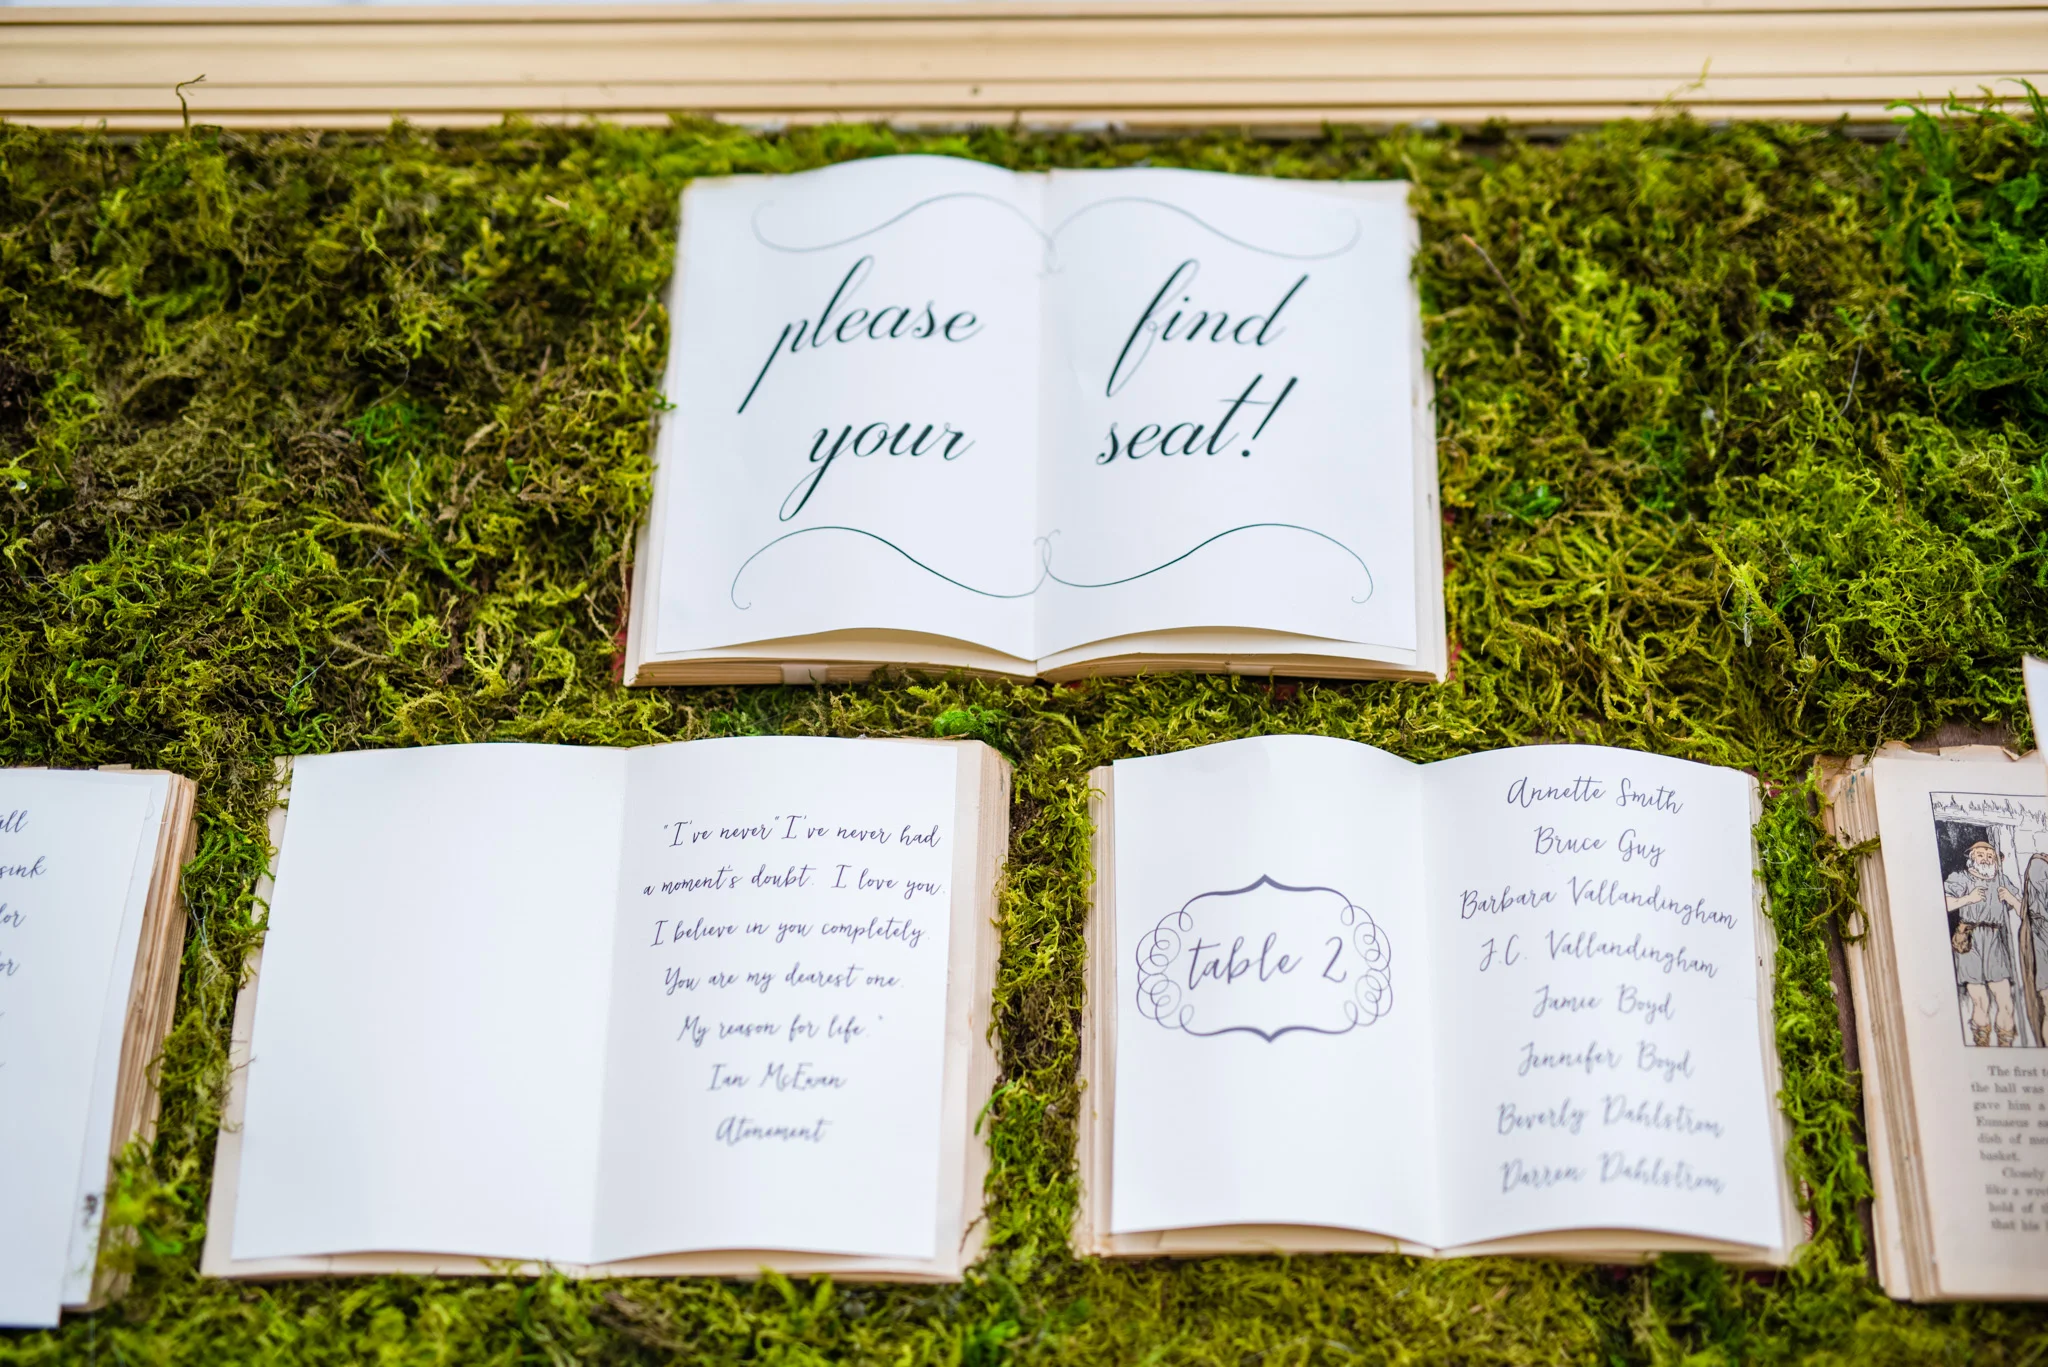 please find
your seat!
sink
"I've never" I've never had
a moment's doubt. I love you.
I believe in you completely.
You are my dearest one.
My reason for life."
Ian McEwan
Atonement
table 2
Annette Smith
Bruce Guy
Barbara Vallandingham
J.C. Vallandingham
Jamie Boyd
Jennifer Boyd
Beverly Dahlstrom
Darren Dahlstrom
The first
the hall was
gave him a
Eumaeus
dish of
basket.
Closely
like a
hold of
that his